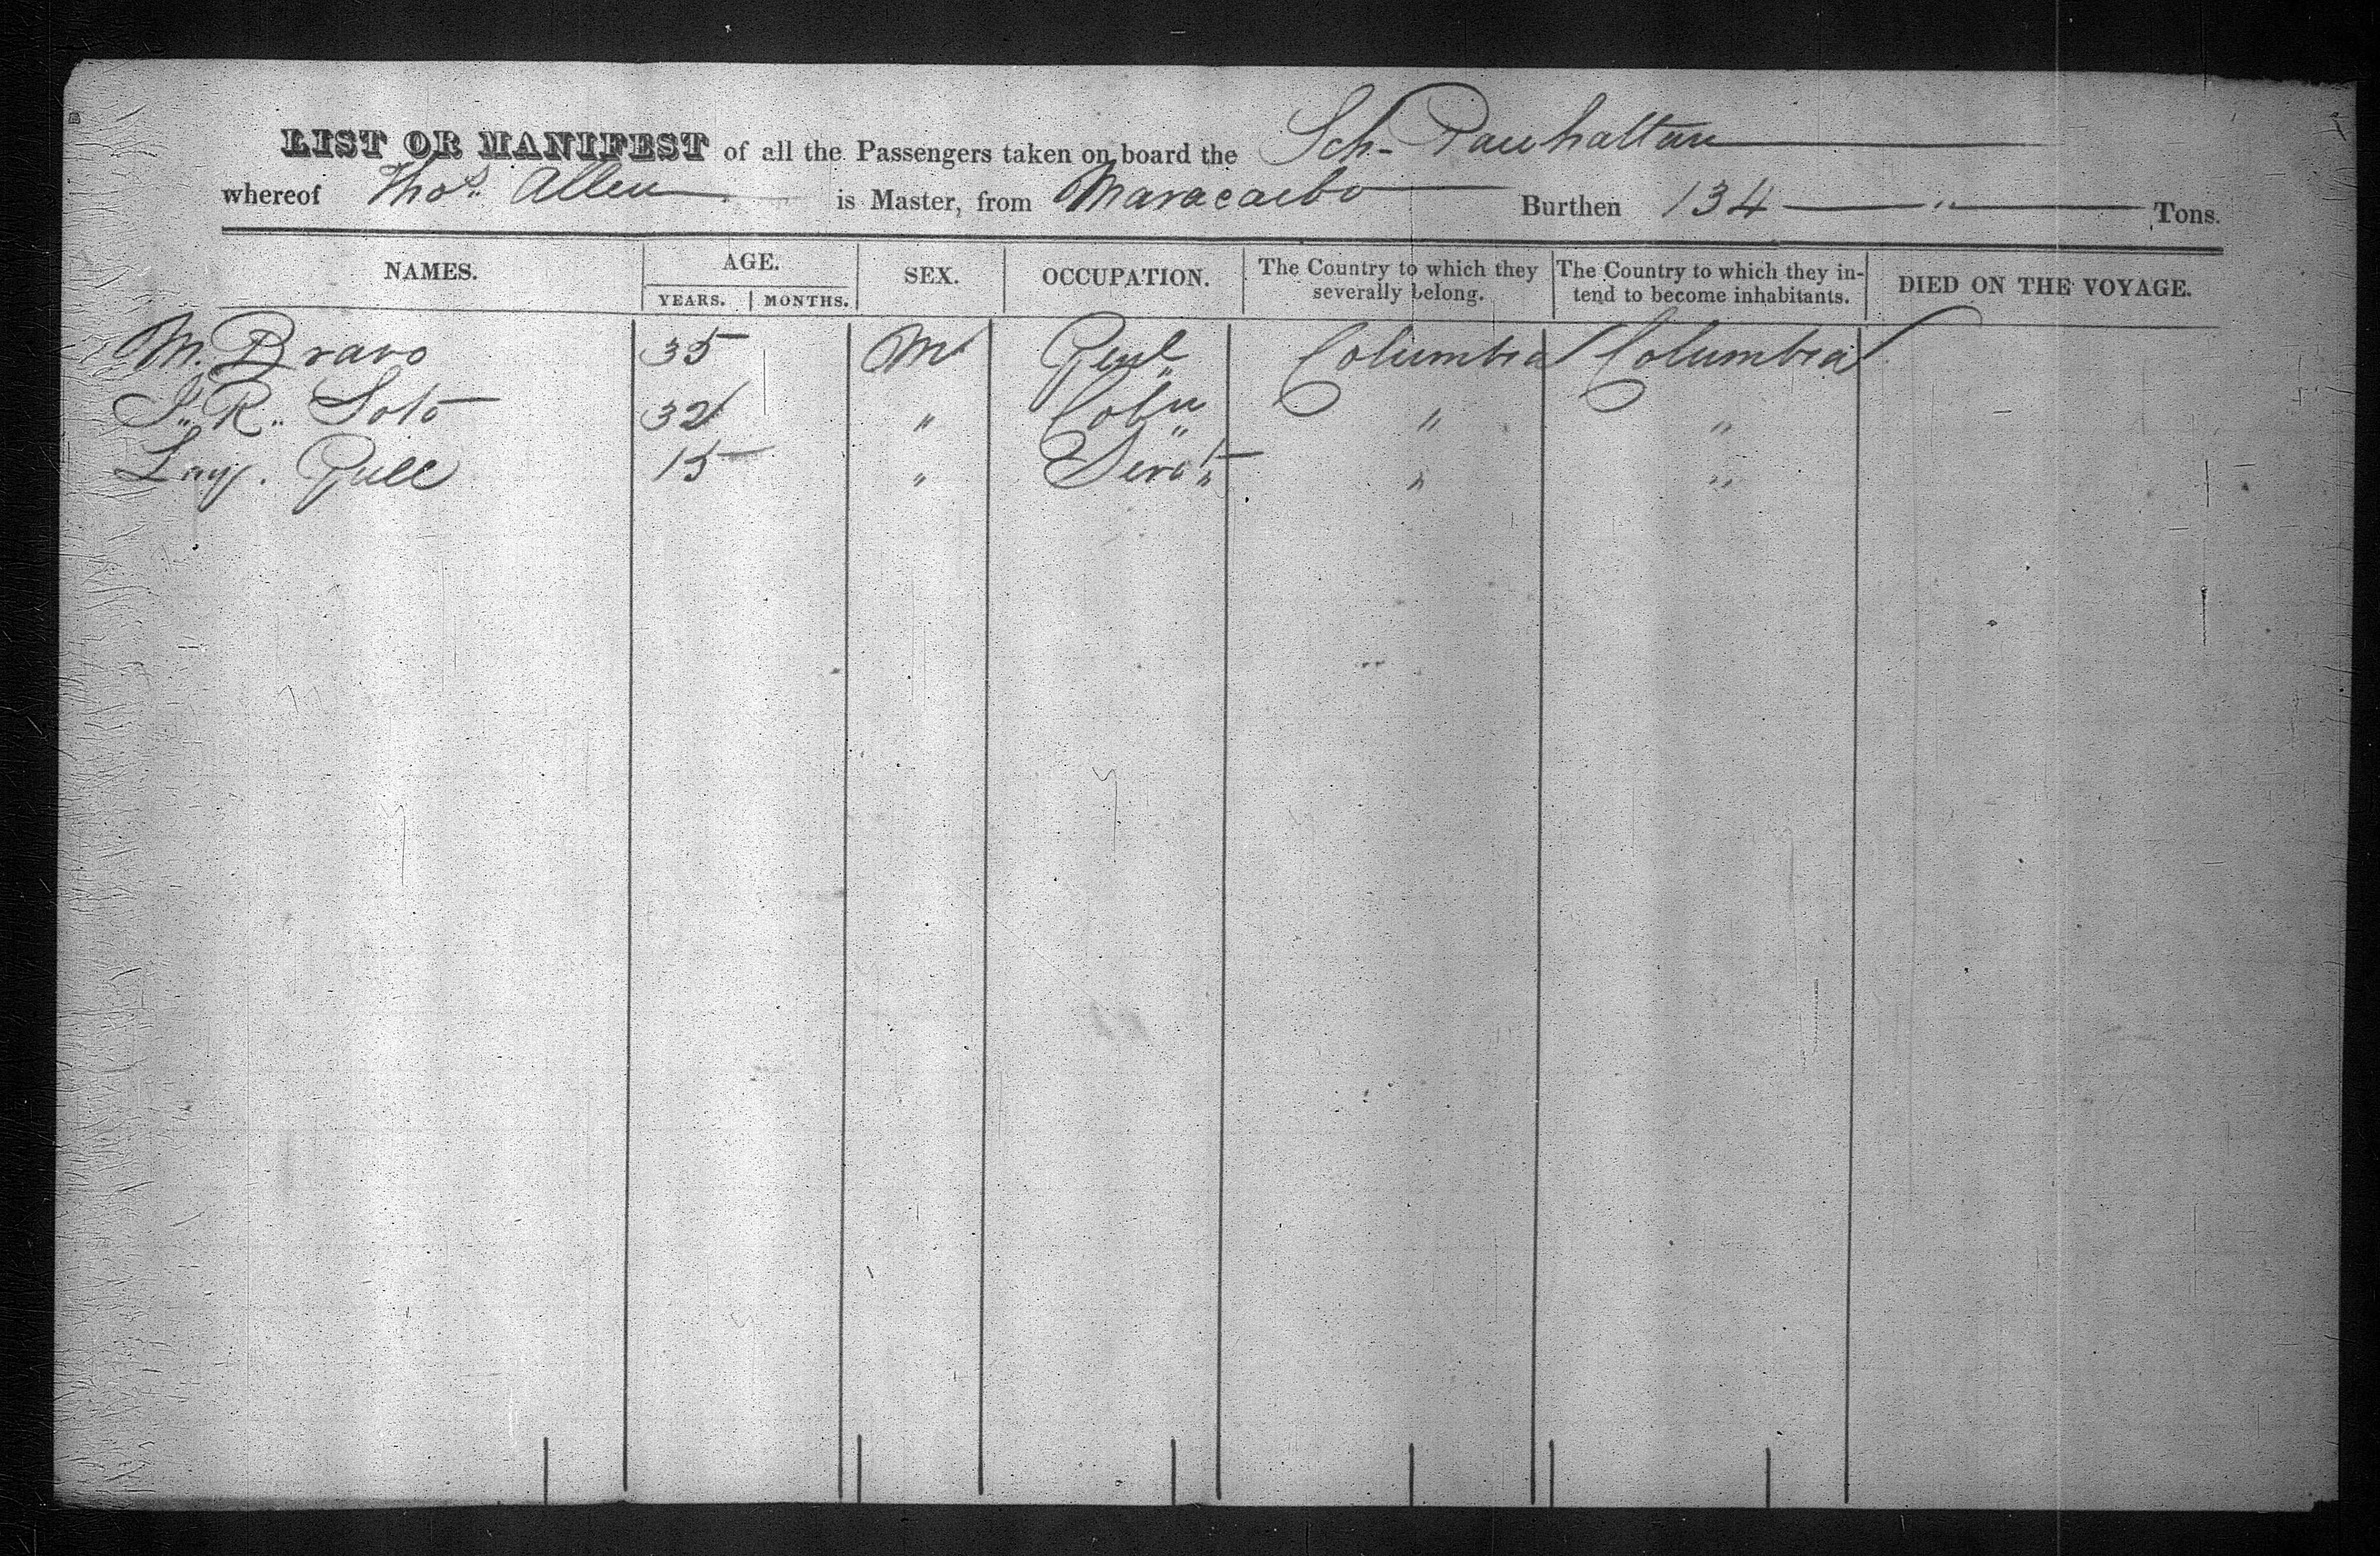 LIST OR MANIFEST of all the Passengers taken on board the Sch. Pauhattan
whereof Thos. Allen is Master, from Maracaibo Burthen 134 " Tons.
NAMES. AGE. YEARS. MONTHS. SEX. OCCUPATION. The Country to which they severally belong. The Country to which they intend to become inhabitants. DIED ON THE VOYAGE.
M. Bravo 35 M Genl Columbia Columbia
J. R. Soto 32 " " "
15 " Servt " "